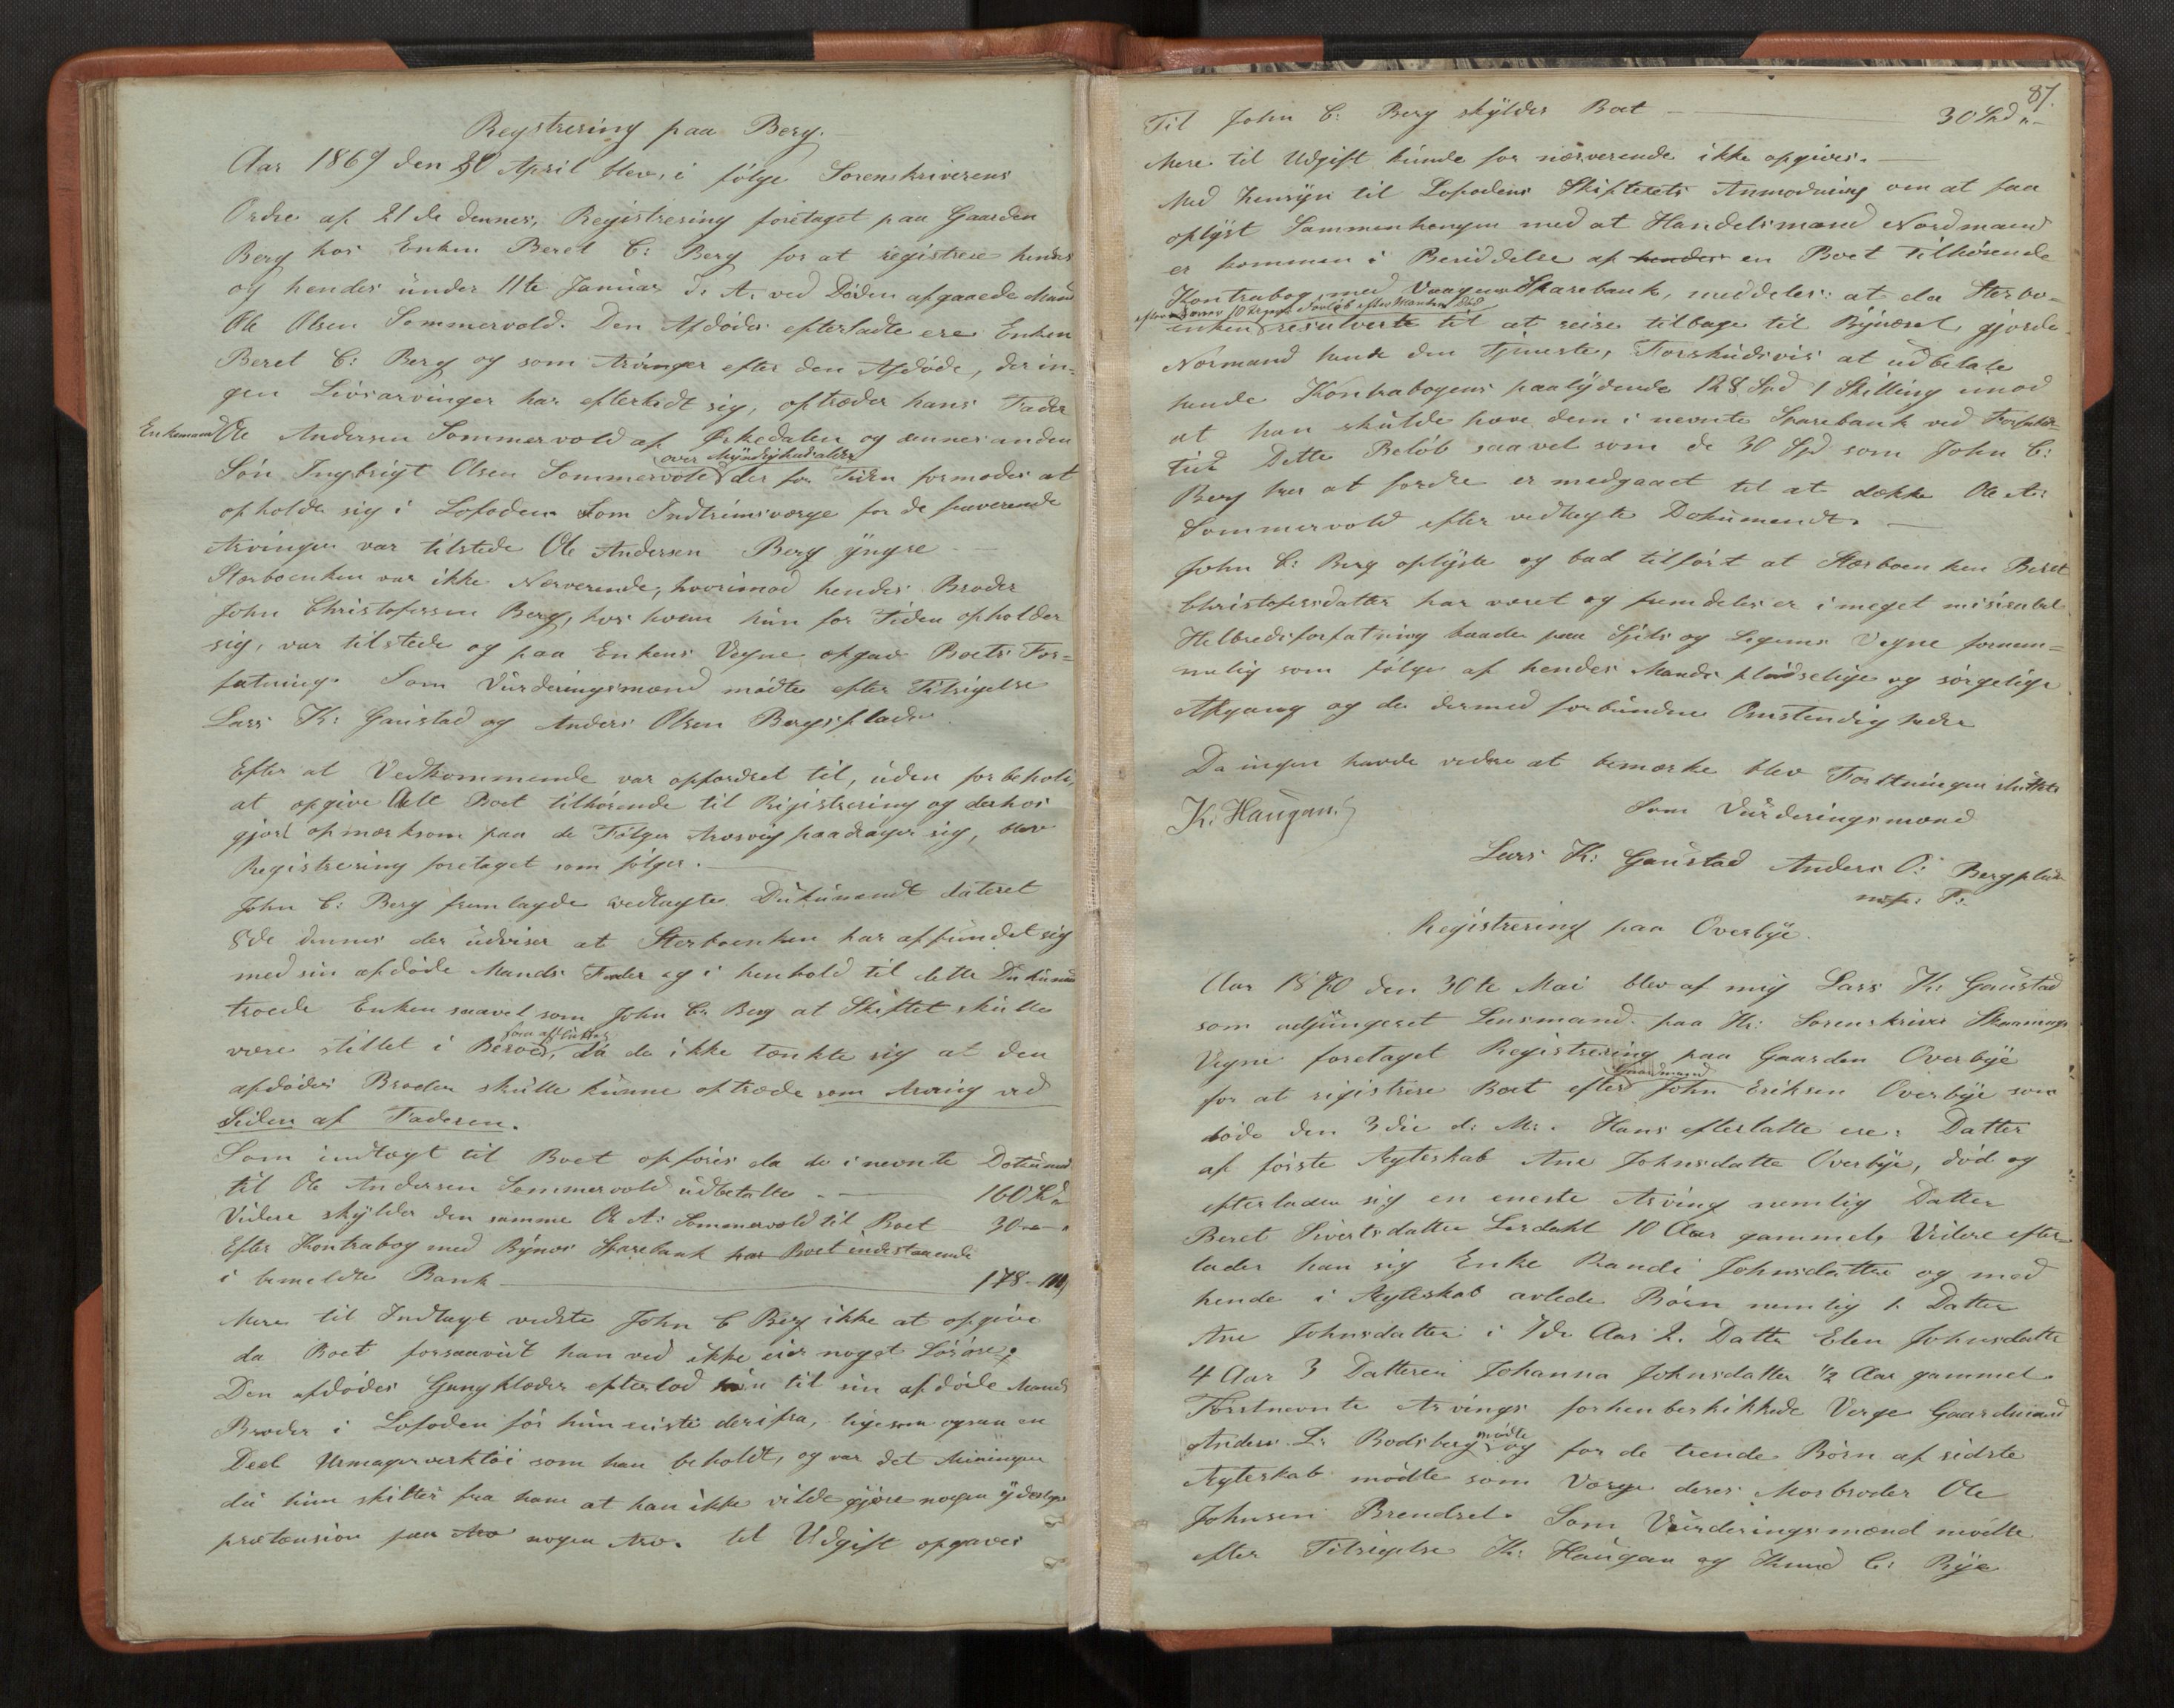 Regstrering paa Berg.
Aar 1869 den 30 April blev i følge Sorenskriverens
Ordre af 21de dennes, Registrering foretaget paa Gaarden
Berg hos Enken Beret C: Berg for at registrere hendes
og hendes under 11te Januar d. A. ved Døden afgaaede Mand
Ole Olsen Sommervold. Den Afdødes efterladte ere Enken
Beret C: Berg og som Arvinger efter den Afdøde, der in-
gen Livsarvinger har efterladt sig, optræder hans Fader
Enkemand Ole Andersen Sommervold af Ørkedalen og dennes anden
over Myndighedsalder
Søn Ingbrigt Olsen Sommervold der for Tiden formodes at
opholde sig i Lofoden. Som Indtrimsværge for de fraverende
Arvinger var tilstede Ole Andersen Berg yngre
Stærboenken var ikke Nerverende, hvorimod hendes Broder
John Christofersen Berg, hos hvem hun for Tiden opholder
sig, var tilstede og paa Enkens Vegne opgav Boets For=
fatning. Som Vurderingsmænd mødte efter Tilsigelse
Lars K: Gaustad og Anders Olsen Bergsplads.
Efter at Vedkommende var opfordret til, uden forbehold,
at opgive Alt Boet tilhørende til Rigistrering og derhos
gjort opmærksom paa de Følger Arvsvig paadrager sig, blev
Registrering foretaget som følger.
John C: Berg fremlagde vedlagte Dukument dateret
8de dennes der udviser at Sterboenken har affundet sig
med sin afdøde Mands Fader og i henhold til dette Dukument
troede Enken saavel som John C: Berg at Skiftet skulle
som afsluttet
være stillet i Beroe, da de ikke tænkte sig at den
afdødes Broder skulle kunne optræde som Arving ved
Siden af Faderen.
Som indtægt til Boet opføres da de i nevnte Dokument
til Ole Andersen Sommervold udbetalte 160
Videre skylder den samme Ole A: Sommervold til Boet 30
Efter Kontrabog med Bynes Sparebank har Boet indestaaende
i bemeldte Bank 178
Mere til Indtægt vidste John C Berg ikke at opgive
da Boet forsaavidt han ved ikke eier noget Løsøre;
Den afdødes Gangklæder efterlod hun til sin afdøde Mands
Broder i Lofoden før hun reiste derifra, ligesom ogsaa en
Deel Urmagerverktøi som han beholdt, og var det Meningen
da hun skiltes fra ham at han ikke vilde gjøre nogen yderligere
prætension paa Arv nogen Arv. til Udgift opgaves
87.
Til John C: Berg skylder Boet 30 Spd
Mere til Udgift kunde for nærverende ikke opgives.
Med Hensyn til Lofodens Skifterets Anmodning om at faa
oplyst Sammenhængen med at Handelsmand Nordmand
er kommen i Besiddelse af hendes en Boet Tilhørende
Kontrabog med Vaagens Sparebank, meddeles: at da Sterbo-
enken resulverte til at reise tilbage til Bynæsset, gjorde
Normand hende den Tjeneste, Forskudsvis at udbetale
hende Kontrabogens paalydende 128 Spd 1 Skilling imod
at han skulde hæve dem i nevnte Sparebank ved Forfalds-
tid. Dette Beløb saavel som de 30 Spd som John C:
Berg har at fordre er medgaaet til at dække Ole A:
Sommervold efter vedlagte Dokumendt.
John C: Berg oplyste og bad tilført at Stærboenken Beret
Christofersdatter har været og fremdeles er i meget miserabel
Helbredsforfatning baade paa Sjels og Legems Vegne fornem=
melig som følge af hendes Mands pludselige og sørgelige
Afgang og de dermed forbundne Omstendigheder
Da ingen havde videre at bemærke blev Forretningen sluttet
K. Haugan.
Som Vurderingsmænd
Lars K: Gaustad Anders O: Bergplads
m. f. P.
Registrering paa Overbye.
Aar 1870 den 30te Mai blev af mig Lars K: Gaustad
som adjungeret Lensmand paa Hr: Sorenskriver
Vegne foretaget Registrering paa Gaarden Overbye
Gaardmand
for at rigistrere Boet efter John Eriksen Overbye som
døde den 3die d: M:. Hans efterlatte ere: Datter
af første Ægteskab Ane Johnsdatter Overbye, død og
efterladen sig en eneste Arving nemlig Datter
Beret Sivertsdatter Lerdahl 10 Aar gammel, Videre efter-
lader han sig Enke Randi Johnsdatter og med
hende i Ægteskab avlede Børn nemlig 1. Datter
Ane Johnsdatter i 7de Aar 2. Datter Elen Johnsdatter
4 Aar 3 Datteren Johanna Johnsdatter ½ Aar gammel.
Førstnevnte Arvings forhenbeskikkede Verge Gaardmand
mødte
Anders L: Bodsberg og for de trende Børn af sidste
Ægteskab mødte som Værge deres Morbroder Ole
Johnsen Brendset. Som Vurderingsmænd mødte
efter Tilsigelse K: Haugan og Knud C: Rye